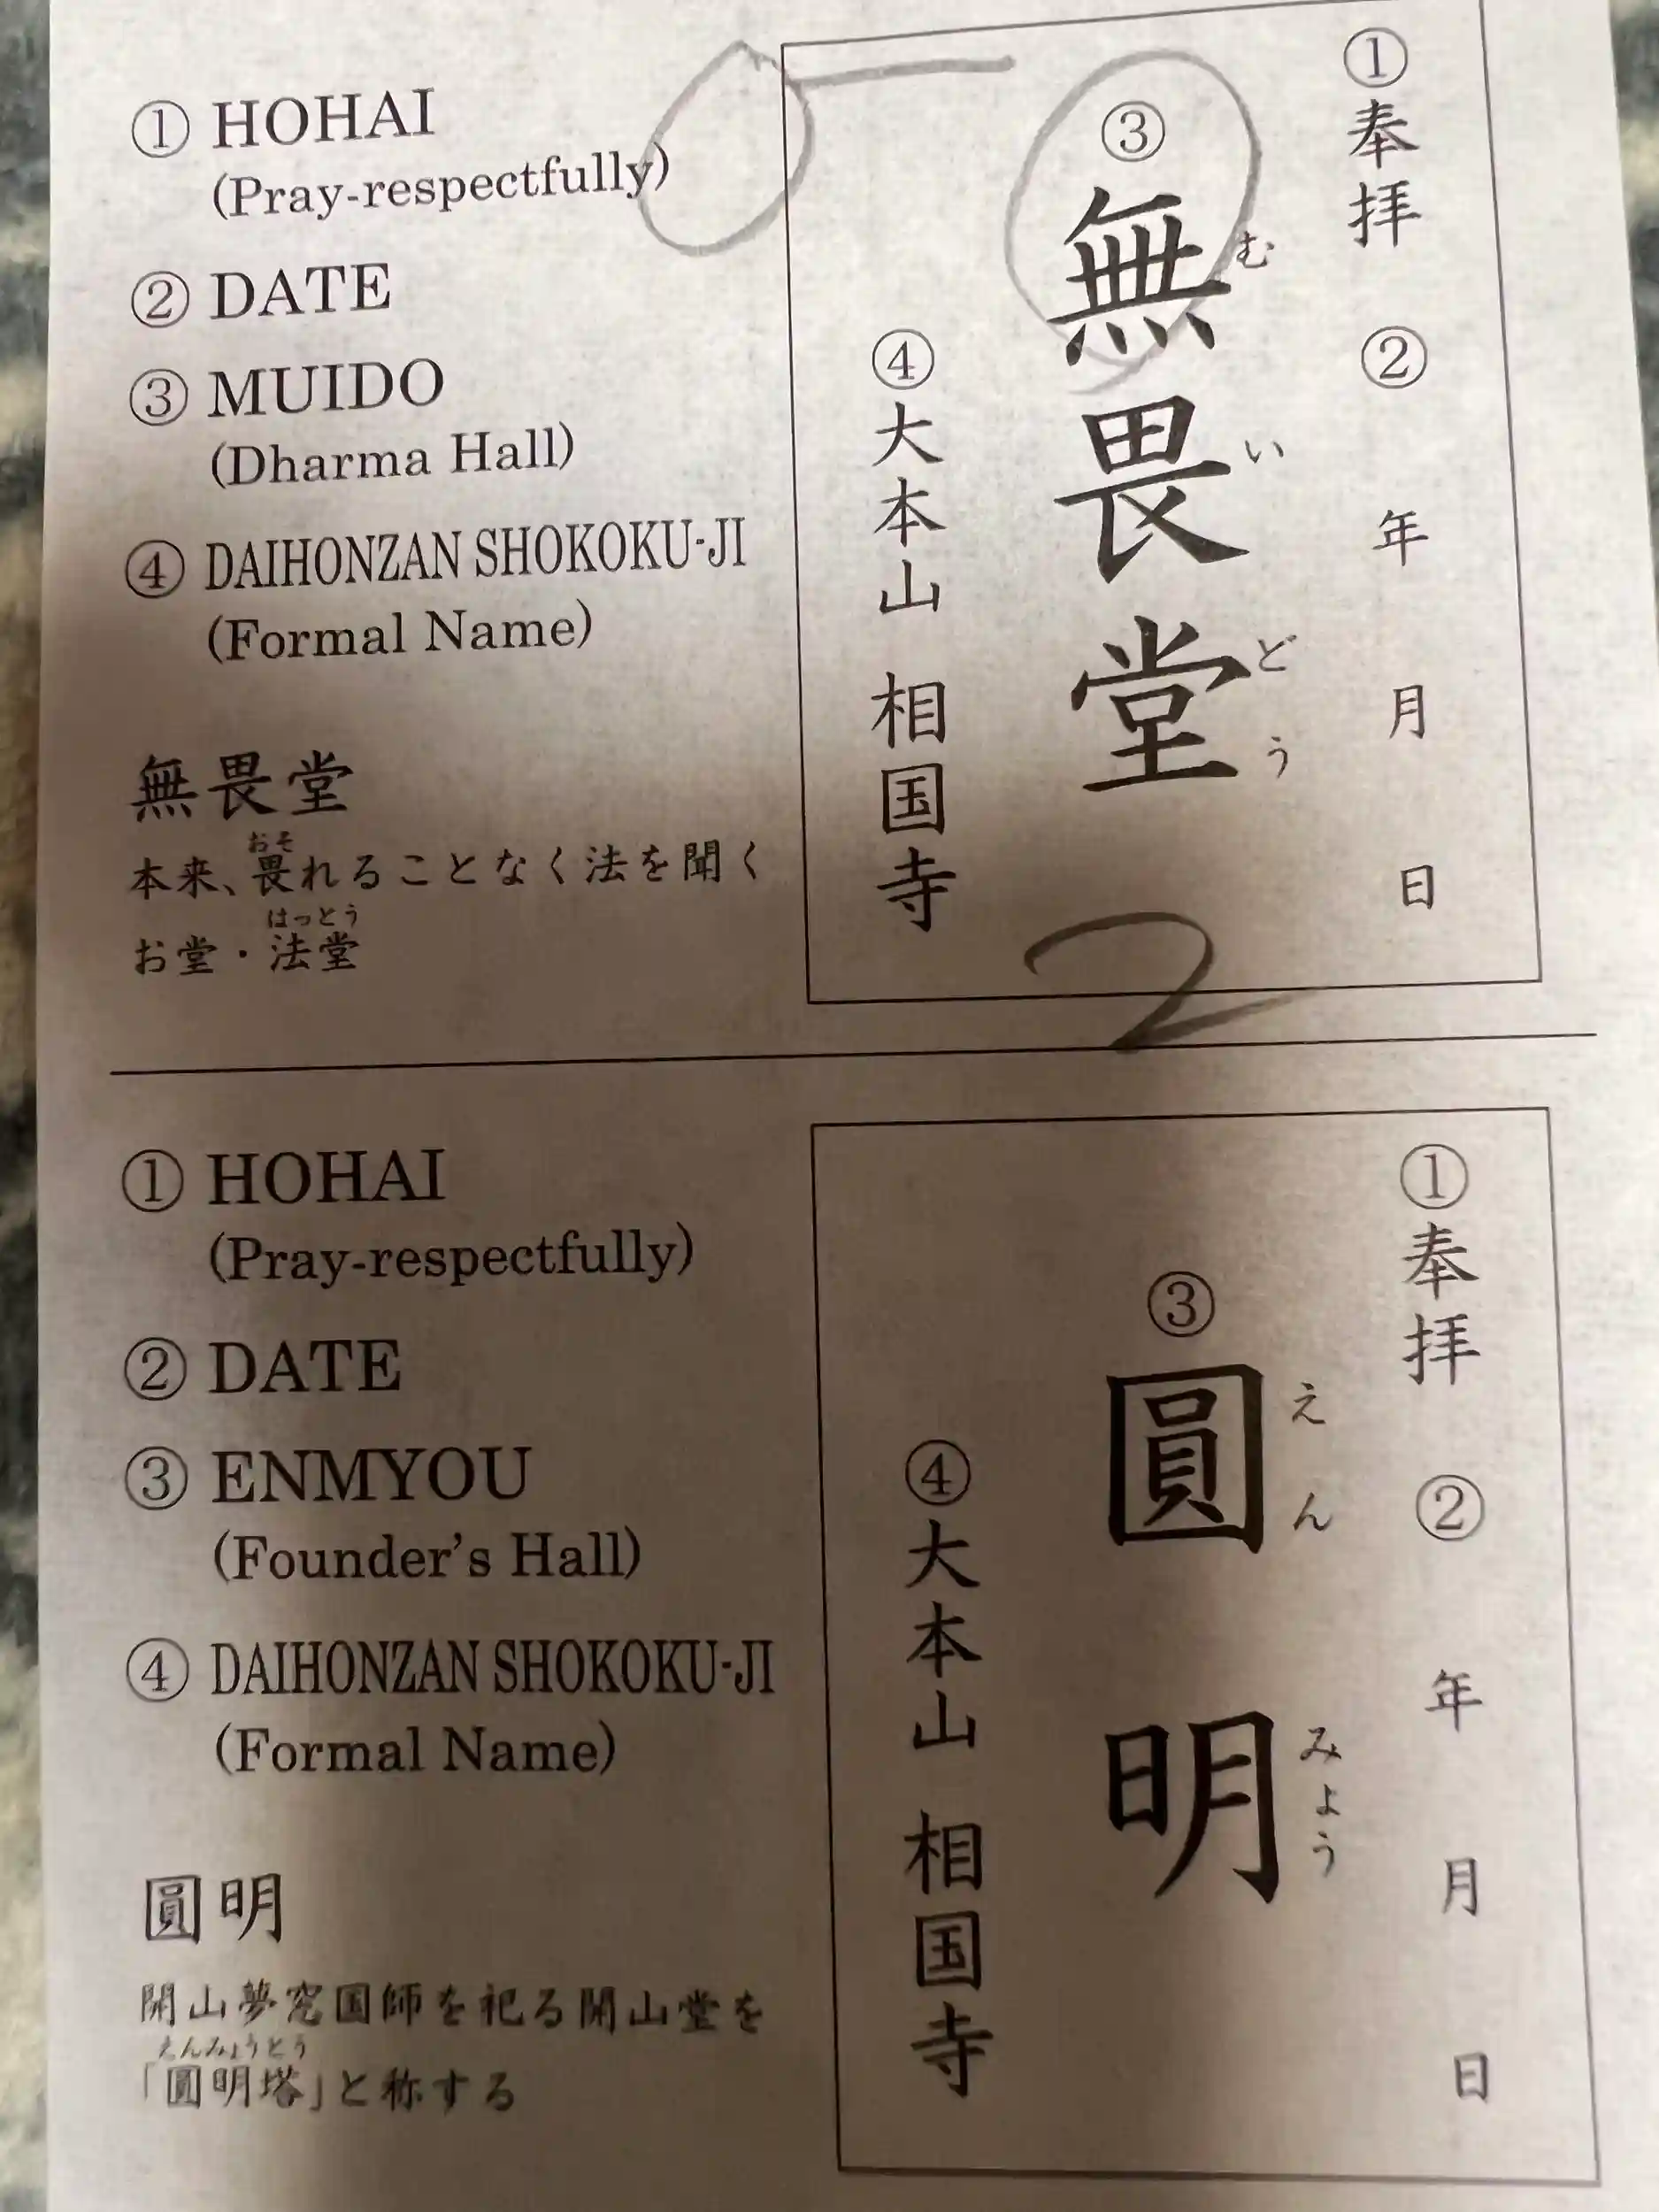 ① HOHAI
(Pray-respectfully)
② DATE
③ MUIDO
(Dharma Hall)
④ DAIHONZAN SHOKOKU-JI
(Formal Name)
無畏堂
おそ
本来、畏れることなく法を聞く
はっとう
お堂・法堂
①奉拝 ② 年 月 日
③無畏堂
むいどう
④大本山 相国寺
2
① HOHAI
(Pray-respectfully)
② DATE
③ ENMYOU
(Founder's Hall)
④ DAIHONZAN SHOKOKU-JI
(Formal Name)
圓明
開山夢窓国師を祀る開山堂を
えんみょうとう
「圓明塔」と称する
①奉拝 ② 年 月 日
③圓明
えんみょう
④大本山 相国寺